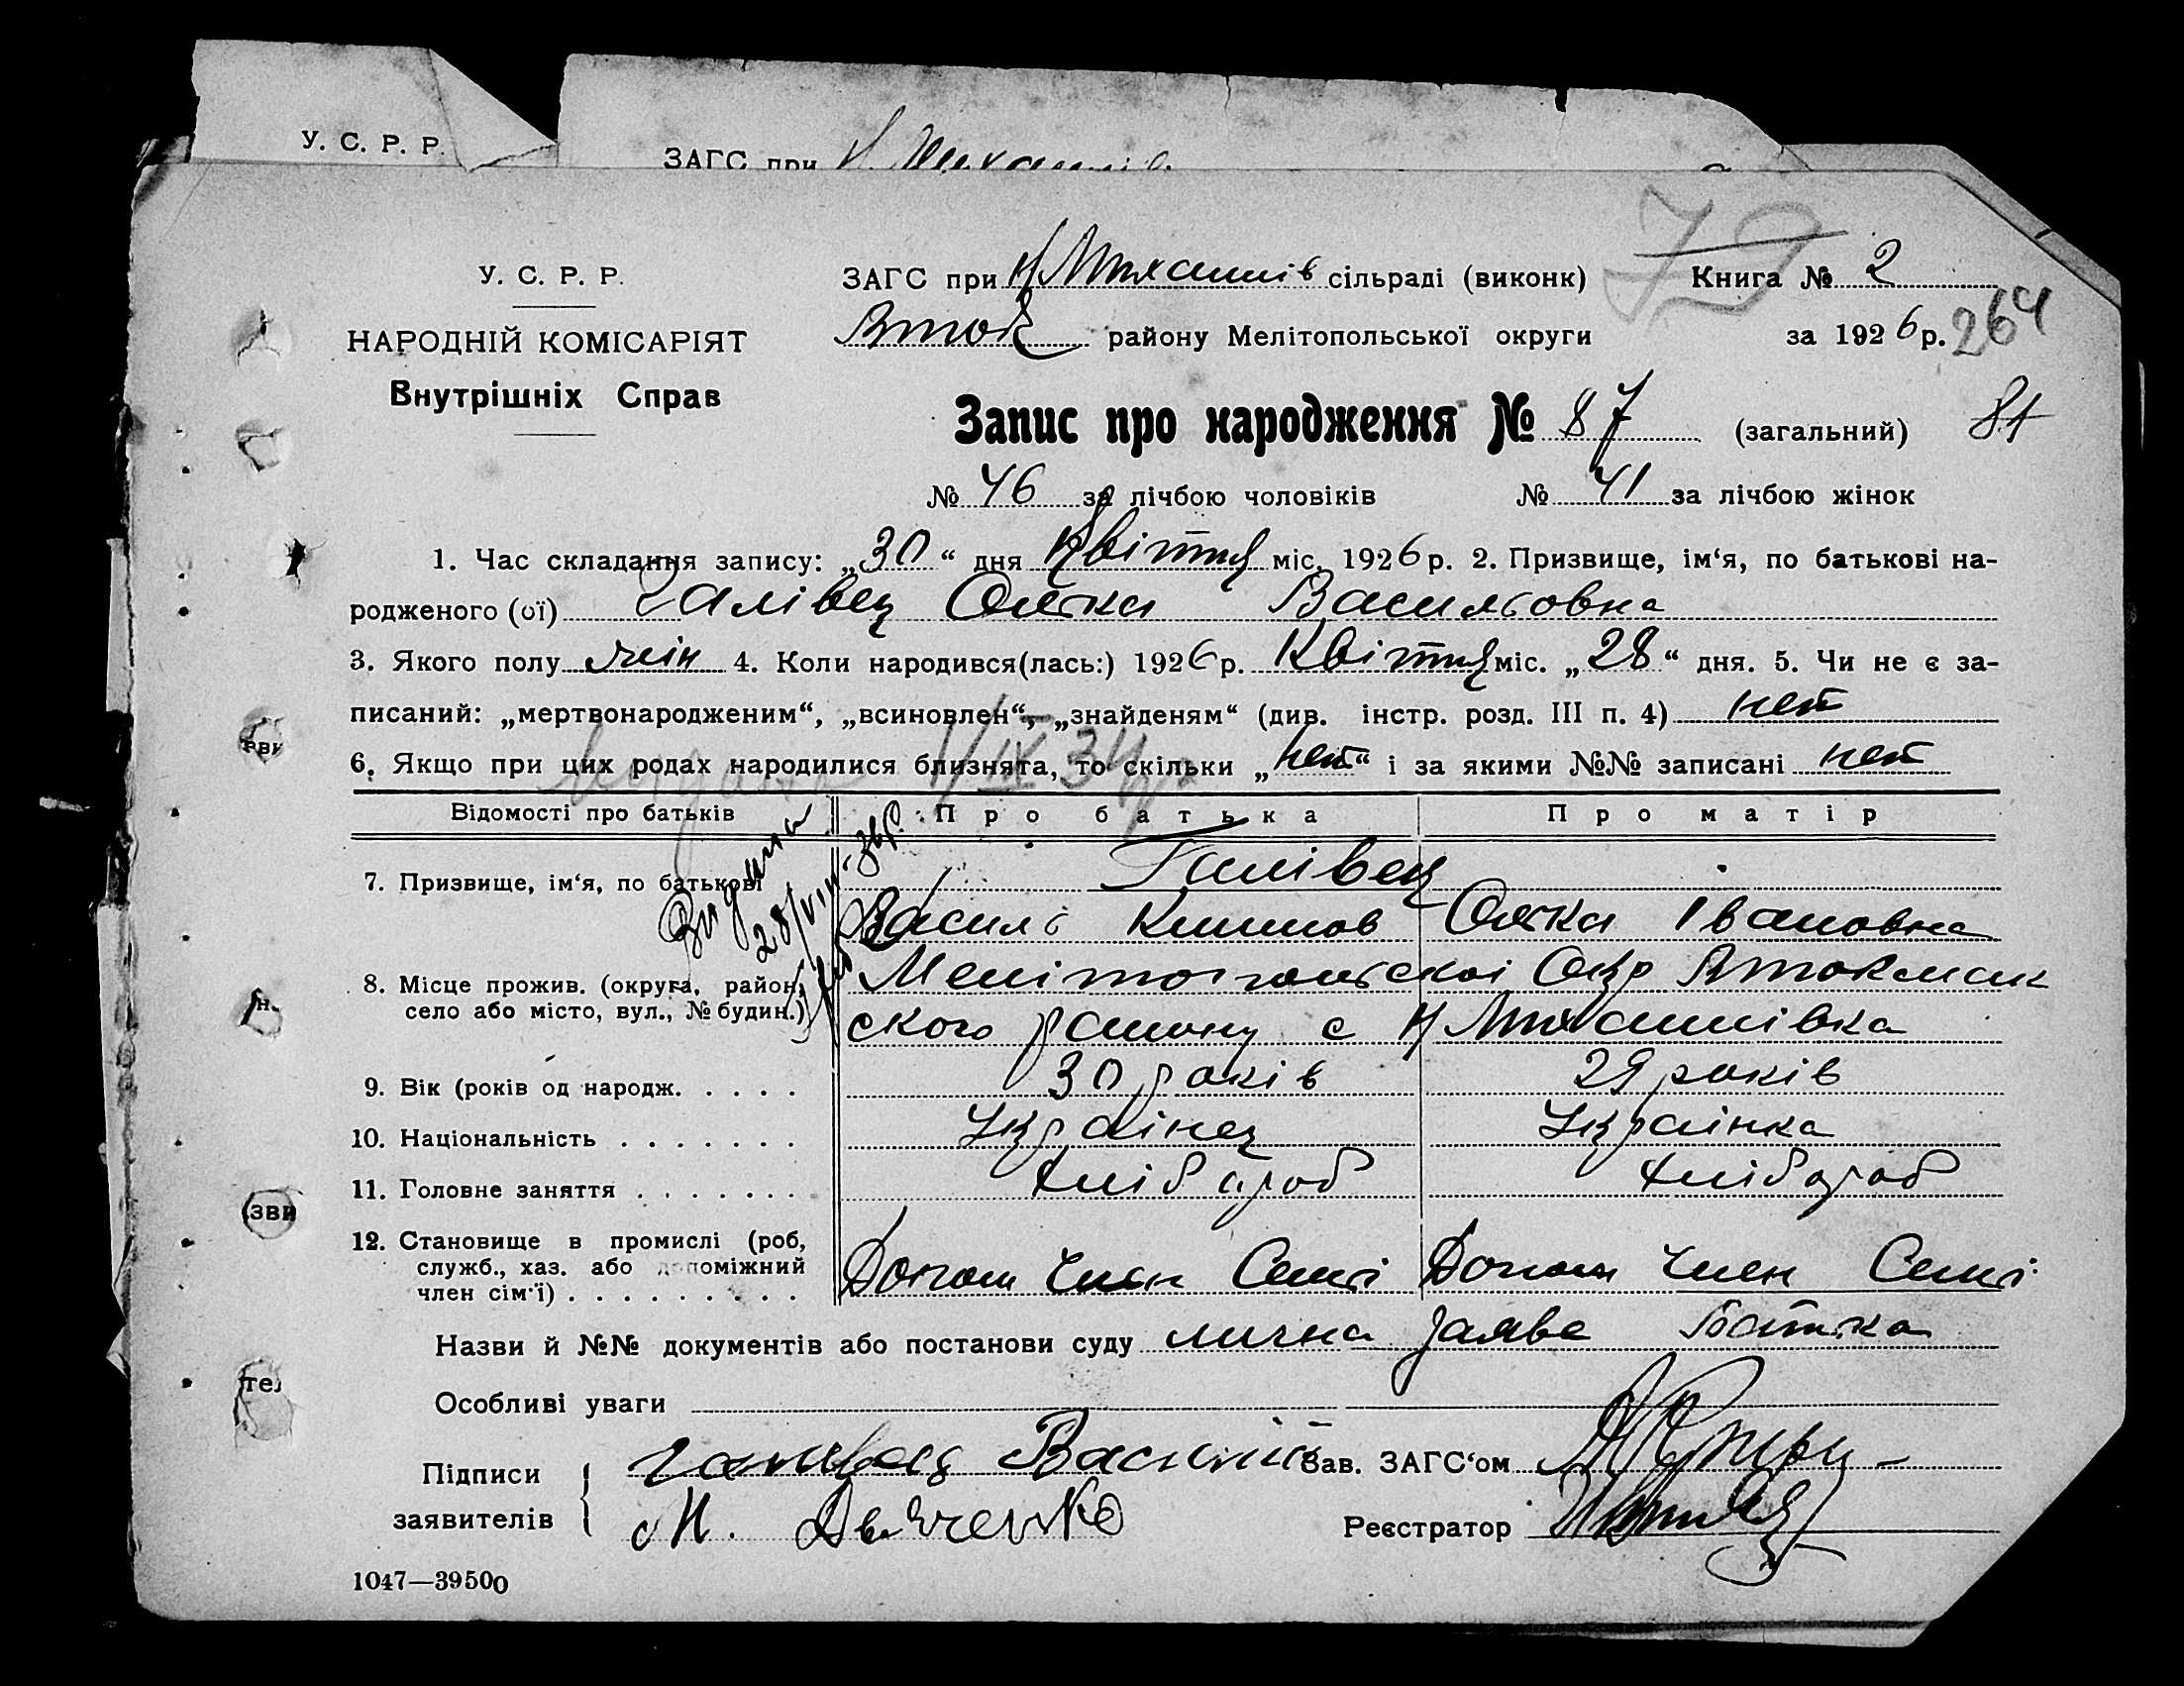 У. С. Р. Р.
ЗАГС при
У. С. Р. Р.
НАРОДНІЙ КОМІСАРІЯТ
Внутрішніх Справ
ЗАГС при Н Михайлів сільраді (виконк)
Вток району Мелітопольської округи
72
Книга № 2
за 1926 р.
264
Запис про народження № 87 (загальний)
81
№ 46 за лічбою чоловіків № 41 за лічбою жінок
1. Час складання запису: „30“ дня Квітня міс. 1926 р. 2. Призвище, ім‘я, по батькові на-
родженого (ої) Галівец Олька Васильовна
3. Якого полу жін 4. Коли народився(лась:) 1926 р. Квітня міс. „28“ дня. 5. Чи не є за-
писаний: „мертвонародженим“, „всиновлен“, „знайденям“ (див. інстр. розд. III п. 4) нет
6. Якщо при цих родах народилися близнята, то скільки „нет“ і за якими №№ записані нет
Відомості про батьків Про батька Про матір
7. Призвище, ім‘я, по батькові Галівец
Василь Климов Олька Івановна
8. Місце прожив. (округа, район, село або місто, вул., № будин.) Мелітопольскоі Окр Втокмак
ского району с Н Михайлівка
9. Вік (років од народж. . . . . 30 років 29 років
10. Національність . . . . . . . Українец Українка
11. Головне заняття . . . . . . . Хлібороб Хлібороб
12. Становище в промислі (роб,
служб., хаз. або допоміжний
член сім‘ї) . . . . . . . . . Допом Член Семі Допом Член Семі
Назви й №№ документів або постанови суду лична заяве батька
Особливі уваги
Підписи заявителів
Галивец Василий
М. Дяченко
Зав. ЗАГС‘ом
Реєстратор
1047—39500